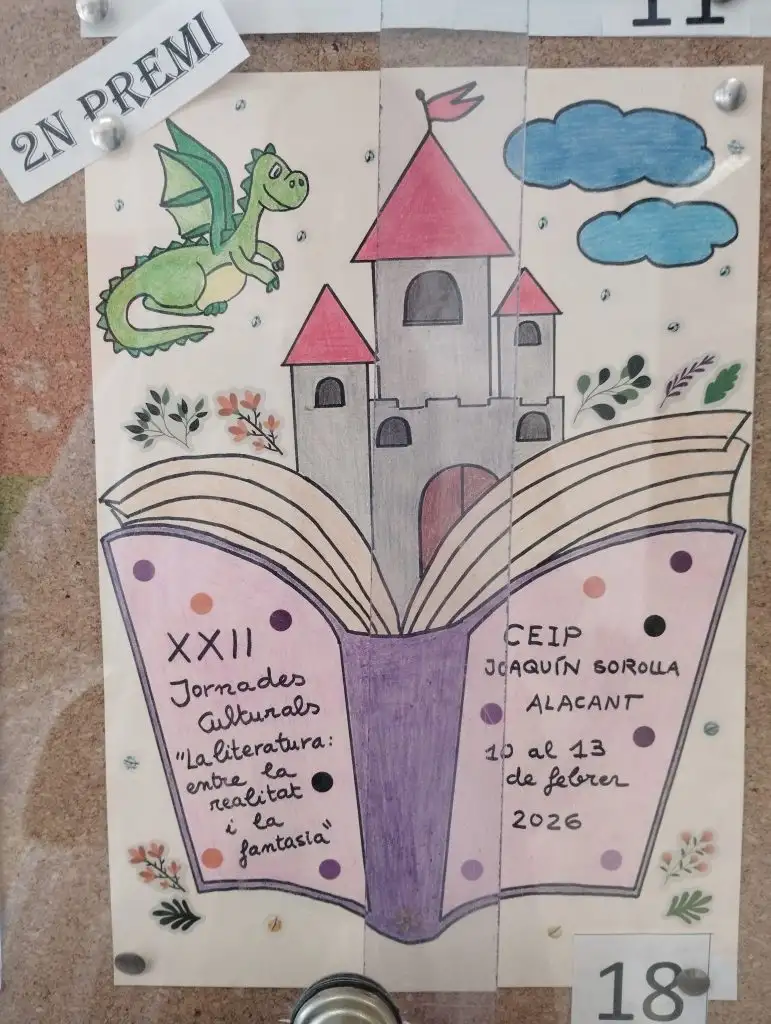 11
2N PREMI
XXII
Jornades
Culturals
"La literatura:
entre la
realitat
i la
fantasia"
CEIP
JOAQUÍN SOROLLA
ALACANT
10 al 13
de febrer
2026
18